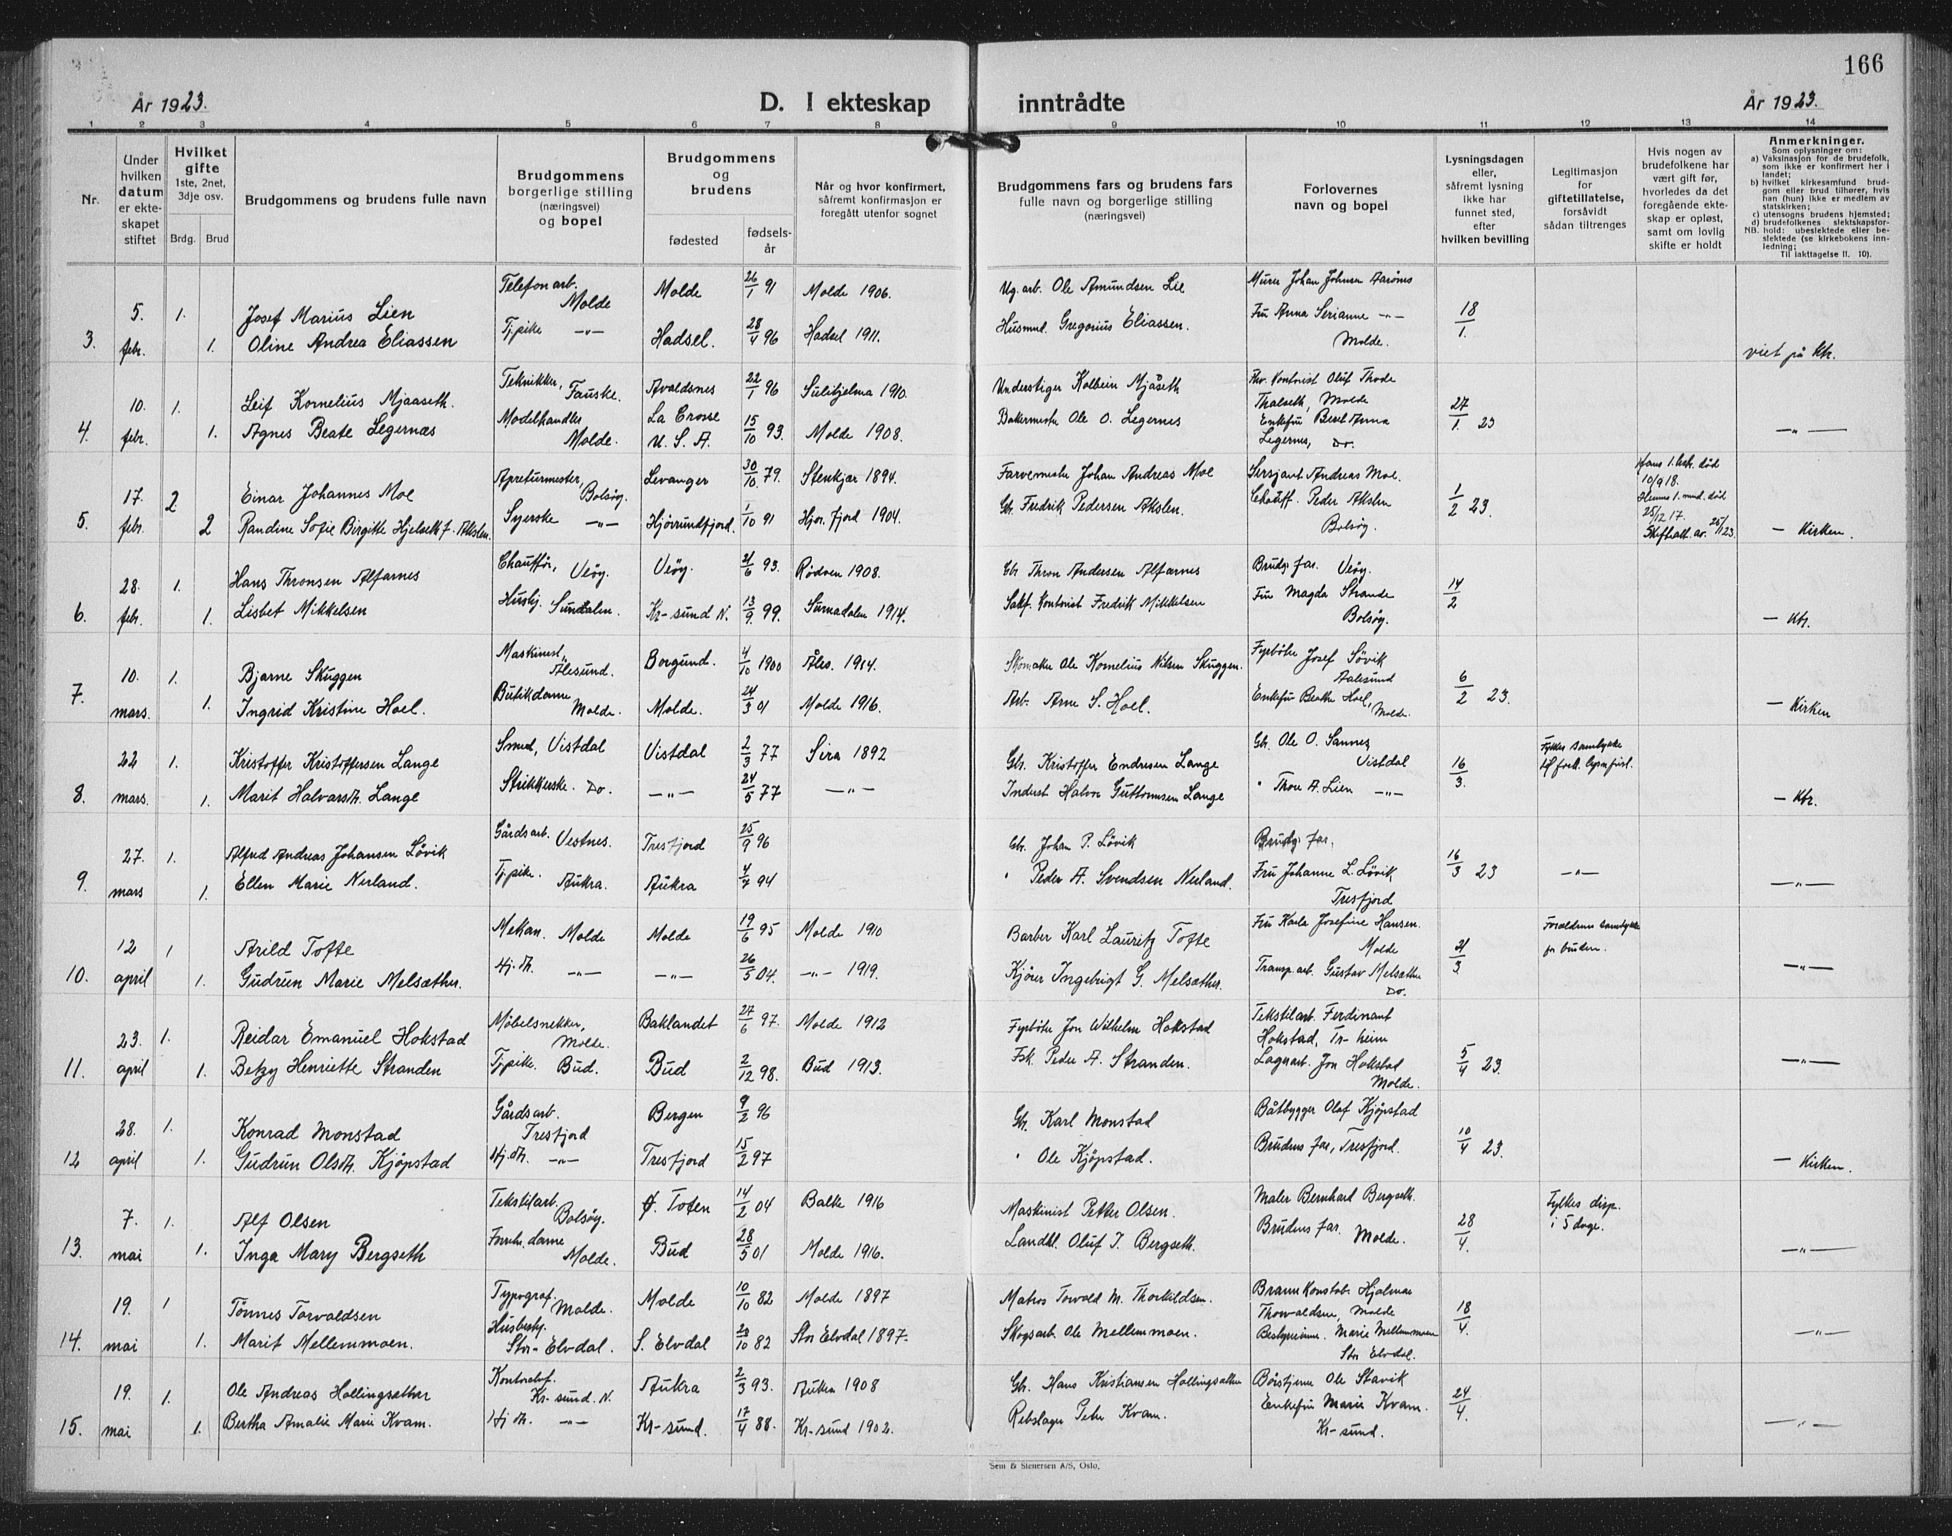 166
År 1923.
D. I ekteskap inntrådte
År 1923.
1 2 3 4 5 6 7 8 9 10 11 12 13 14
Nr.
Under hvilken datum er ekteskapet stiftet
Hvilket gifte 1ste, 2net, 3dje osv.
Brdg. Brud
Brudgommens og brudens fulle navn
Brudgommens borgerlige stilling (næringsvei) og bopel
Brudgommens og brudens
fødested
fødselsår
Når og hvor konfirmert, såfremt konfirmasjon er foregått utenfor sognet
Brudgommens fars og brudens fars fulle navn og borgerlige stilling (næringsvei)
Forlovernes navn og bopel
Lysningsdagen eller, såfremt lysning ikke har funnet sted, efter hvilken bevilling
Legitimasjon for giftetillatelse, forsåvidt sådan tiltrenges
Hvis nogen av brudefolkene har vært gift før, hvorledes da det foregående ekteskap er opløst, samt om lovlig skifte er holdt
Anmerkninger.
Som oplysninger om:
a) Vaksinasjon for de brudefolk, som ikke er konfirmert her i landet;
b) hvilket kirkesamfund brudgom eller brud tilhører, hvis han (hun) ikke er medlem av statskirken;
c) utensogns brudens hjemsted;
d) brudefolkenes slektskapsforhold: ubeslektede eller beslektede (se kirkebokens innledning;
NB. Til iakttagelse II. 10).
3. 5. febr. 1. Josef Marius Lien Telefonarb. Molde Molde 26/1 91 Molde 1906. Ole Amundsen Lie Murer Johan Johnsen 18/1.
1. Oline Andrea Eliassen Tj.pike -"- Hadsel. 28/4 96 Hadsel 1911. Husmd. Gregorius Eliassen. Fru Anna Serianne -"- Molde. viet på Ktr.
4. 10. febr. 1. Leif Kornelius Mjaaseth. Tekniker, Fauske. Avaldsnes 22/1 96 Sulitjelma 1910. Understiger Kolbein Mjåseth Kontorist Oluf Thode Thalseth, Molde 27/1 23
1. Agnes Beate Legernæs Modehandler Molde. La Crosse U.S.A. 15/10 93. Molde 1908. Bakermester Ole O. Legernes Enkefru Beret Anna Legernes, Do. -"-
5. 17. febr. 2 Einar Johannes Moe Apreturmester, Bolsøy. Levanger 30/10 79. Stenkjær 1894. Farvemester Johan Andreas Moe Sersjant Andreas Moe. 1/2 23. Hans 1. hstr. død 10/9 18.
2 Randine Sofie Birgitte Hjelseth f. Akslen. Syerske -"- Hjørundfjord. 1/10 91 Hjør. fjord 1904. Gbr. Fredrik Pedersen Akslen. Chauff. Peder Akslen Bolsøy. Hennes 1. mand død 25/12 17. Skifteatt. av 25/1 23. - Kirken.
6. 28. febr. 1. Hans Thronsen Alfarnes Chauffør, Veøy. Veøy. 21/6 93. Rødven 1908. Gbr. Thron Andersen Alfarnes Brudg. far. Veøy. 14/2
1. Lisbet Mikkelsen Hushj. Sundalen. Kr-sund N. 13/9 99. Surnadalen 1914. Kontorist Fredrik Mikkelsen Fru Magda Strande Bolsøy. - Ktr.
7. 10. mars. 1. Bjarne Skuggen Maskinist, Ålesund. Borgund. 4/10 1900 Åles. 1914. Skomaker Ole Kornelius Nilsen Skuggen. Fyrbøter Josef Søvik Aalesund 6/2 23.
1. Ingrid Kristine Hoel. Butikdame Molde. Molde. 24/3 01 Molde 1916. Arb. Arne S. Hoel. Enkefru Beathe Hoel, Molde. - Kirken
8. 22 mars. 1. Kristoffer Kristoffersen Lange Smed, Vistdal Vistdal 2/3 77 Sira 1892 Gbr. Kristoffer Endresen Lange Gbr. Ole O. Sannes Vistdal 16/3. Fylkes samtykke
1. Marit Halvarsdt. Lange Strikkerske. Do. -"- 24/5 77 -"- Inderst Halvor Guttormsen Lange " Thore A. Lien -"- - Ktr.
9. 27. mars 1. Alfred Andreas Johansen Løvik Gårdsarb. Vestnes. Tresfjord 25/9 96 Gbr. Johan P. Løvik Brudg. far. 16/3 23 -"-
1. Ellen Marie Nerland. Tj.pike. Aukra. Aukra 4/7 94 " Peder A. Svendsen Nerland. Fru Johanne L. Løvik Tresfjord -"-
10. 12 april 1 Arild Tofte Mekan. Molde Molde 19/6 95 Molde 1910 Barber Karl Lauritz Tofte Fru Karla Josefine Hansen. Molde 21/3. Forældrenes samtykke for bruden.
1. Gudrun Marie Melsæther. Hj.dt. -"- -"- 26/5 04. -"- 1919. Kjører Ingebrigt G. Melsæther. Transp.arb. Gustav Melsæther Do. -"-
11. 23. april 1. Reidar Emanuel Hokstad Møbelsnekker, Molde. Baklandet 27/6 97. Molde 1912 Fyrbøter Jon Wilhelm Hokstad Tekstilarb. Ferdinant Hokstad, Tr-heim 5/4 23.
1. Betzy Henriette Stranden Tj.pike. Bud. Bud 2/12 98. Bud 1913. Fsk. Peder A. Stranden. Lagerarb. Jon Hokstad Molde. -"-
12 28. april 1. Konrad Monstad Gårdsarb. Tresfjord Bergen 9/2 96 Gbr. Karl Monstad Båtbygger Olaf Kjøpstad 10/4 23.
1. Gudrun Olsdt. Kjøpstad Hj.dt. -"- Tresfjord 15/2 97 " Ole Kjøpstad. Brudens far, Tresfjord. - Kirken.
13. 7. mai 1. Alf Olsen Tekstilarb. Bolsøy. Ø. Toten 14/2 04 Balke 1916 Maskinist Petter Olsen. Maler Bernhard Bergseth. 28/4. Fylkes disp. i 5 dage.
1. Inga Mary Bergseth Forretn.dame Molde. Bud 28/5 01 Molde 1916. Landhl. Oluf J. Bergseth. Brudens far. Molde. -"-
14. 19. mai 1 Tønnes Torvaldsen Typograf. Molde. Molde 10/10 82 Molde 1897 Matros Torvald M. Thorkildsen. Brannkonstab. Hjalmar Thorvaldsen, Molde 18/4.
1. Marit Mellemmoen. Husbesty. Stor-Elvdal. S. Elvdal 20/10 82 Stor Elvdal 1897. Skogsarb. Ole Mellemmoen. Bestyrerinne. Marie Mellemmoen Stor Elvdal. -"-
15. 19. mai 1. Ole Andreas Hollingsæther Kontorchef. Kr-sund. N. Aukra 2/3 93. Aukra 1908 Gbr. Hans Kristiansen Hollingsæther Ole Stavik 24/4.
1. Bertha Amalie Marie Kvam. Hj.dt. -"- Kr-sund. 17/4 88. Kr-sund 1902. Rebslager Peter Kvam. Enkefru Marie Kvam. Kr-sund. -"-
Sem & Stenersen A/S, Oslo.